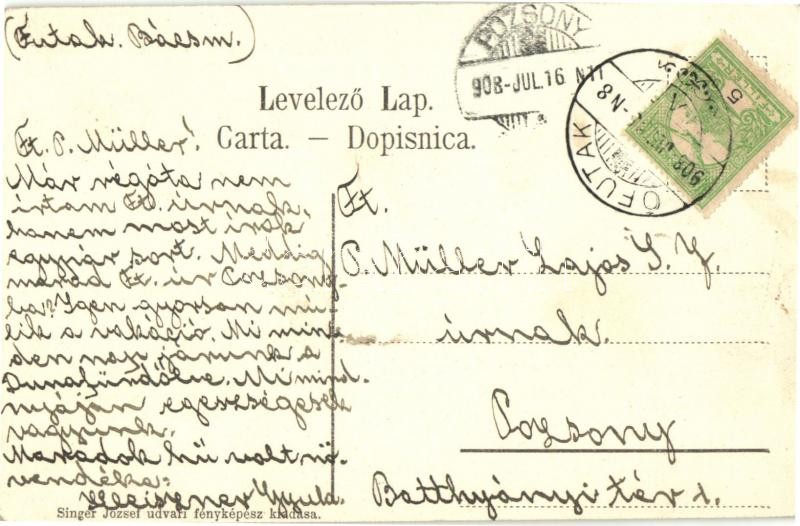 (Futak. Bácsm.)
POZSONY
908-JUL.16 N11
ÓFUTAK
5
FILLÉR
Levelező Lap.
Carta. — Dopisnica.
Ft. P. Müller!
Már régóta nem
írtam Ft. úrnak,
hanem most írok
egypár sort. Meddig
marad Ft. úr Pozsony-
ba? Igen gyorsan mú-
lik a vakázió. Mi min-
den nap járunk a
Dunafürdőbe. Mi mind-
nyájan egészségesek
vagyunk.
Maradok hű volt nö-
vendéke:
Gyula.
Ft.
P. Müller Lajos S. J.
úrnak.
Pozsony
Batthyányi tér 1.
Singer József udvari fényképész kiadása.